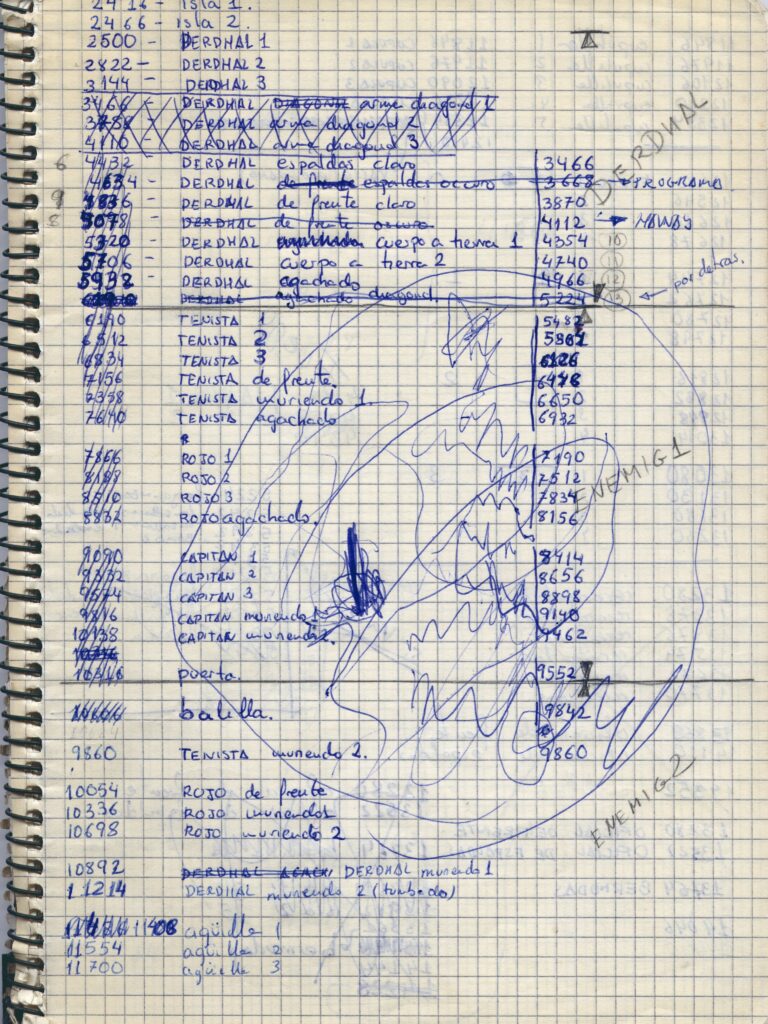 2416 - isla 1.
2466 - isla 2.
2500 - DERDHAL 1
2822 - DERDHAL 2
3144 - DERDHAL 3
3466 - DERDHAL DIAGONAL arma diagonal 1
3788 - DERDHAL arma diagonal 2
4110 - DERDHAL arma diagonal 3
6 4432 DERDHAL espaldas claro 3466
4634 - DERDHAL de frente espaldas oscuro 3668 → PROGRAMA
9 DERDHAL de frente claro 3870
8 5078 - DERDHAL de frente oscuro 4112 → HAWAY
5320 - DERDHAL cuerpo a tierra 1 4354 10
5706 - DERDHAL cuerpo a tierra 2 4740 11
5938 - DERDHAL agachado 4966 12
DERDHAL agachado diagonal. 5224 13 ← por detras.
DERDHAL
6190 TENISTA 1 5482
6512 TENISTA 2
6834 TENISTA 3 6126
7156 TENISTA de frente. 6448
7398 TENISTA muriendo 1. 6650
7640 TENISTA agachado 6932
7866 ROJO 1 7190
8188 ROJO 2 7512
8510 ROJO 3 7834
8832 ROJO agachado. 8156
ENEMIG1
9090 CAPITAN 1 8414
9332 CAPITAN 2 8656
9574 CAPITAN 3 8898
9816 CAPITAN muriendo 9140
10138 CAPITAN muriendo 2. 9462
puerta. 9552
balilla. 9842
9860 TENISTA muriendo 2. 9860
ENEMIG2
10054 ROJO de frente
10336 ROJO muriendo1
10698 ROJO muriendo 2
10892 DERDHAL AGACH. DERDHAL muriendo 1
11214 DERDHAL muriendo 2 (tumbado)
11408 agüilla 1
11554 agüilla 2
11700 agüilla 3